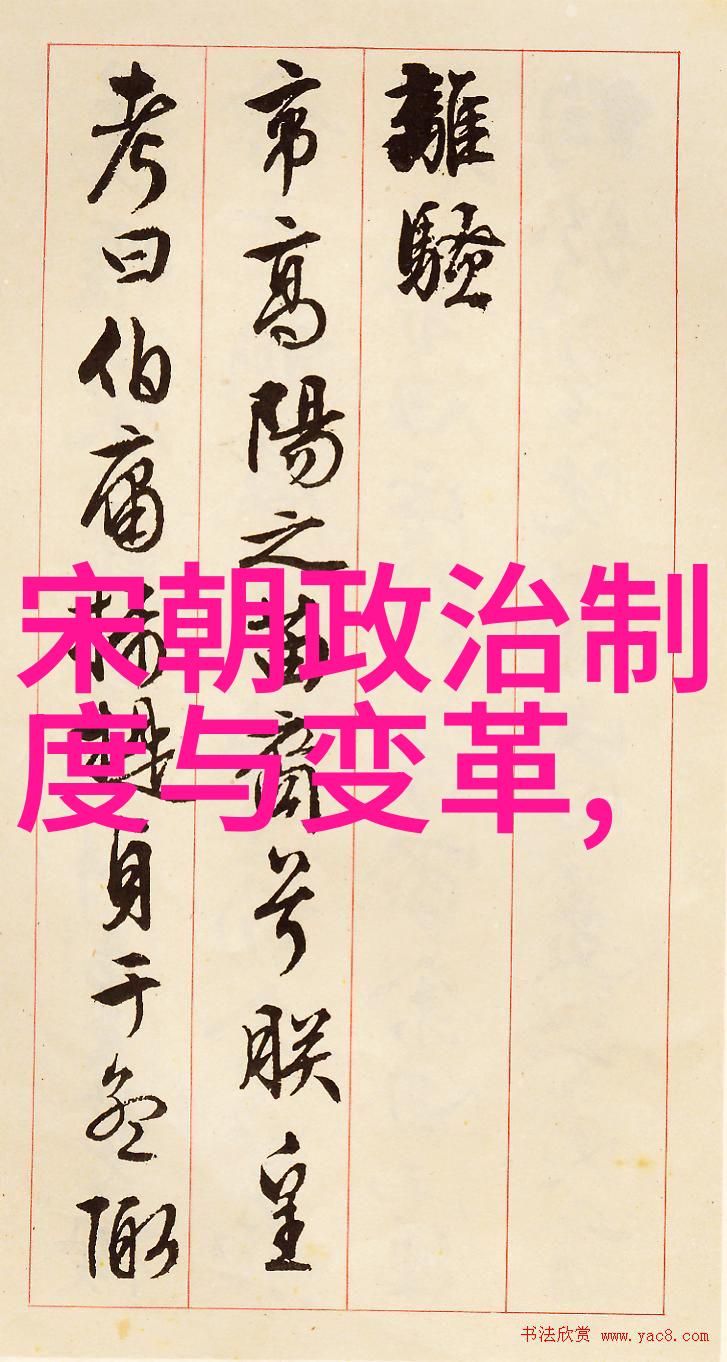 離騷
帝高陽之苗裔兮朕皇
考曰伯庸攝提貞于孟陬
宋朝政治制
度与变革,
书法欣赏 www.yac8.com